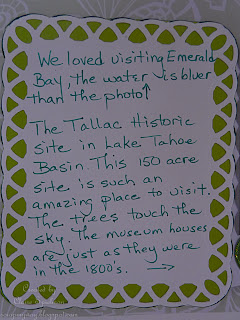 We loved visiting Emerald
Bay, the water is bluer
than the photo↑
The Tallac Historic
site in Lake Tahoe
Basin. This 150 acre
site is such an
amazing place to visit.
The trees touch the
sky. The museum houses
are just as they were
in the 1800's. →
Created by